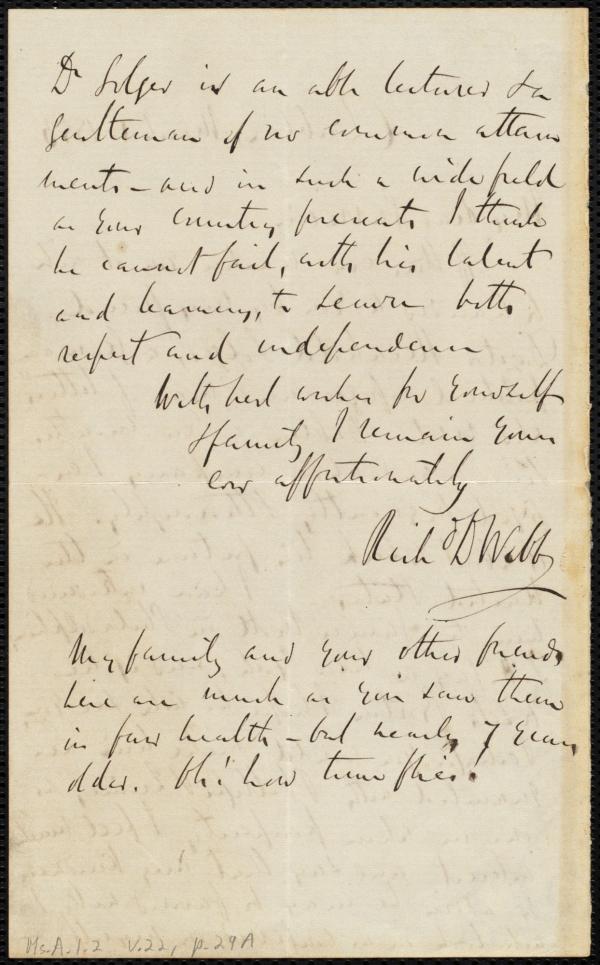 Dr Solger is an able lecturer & a
gentleman of no common attain
ments - and in such a wide field
as your country presents I think
he cannot fail, with his talent
and learning, to secure both
respect and independence
With best wishes for yourself
& family I remain yours
ever affectionately
Richd D Webb
My family and your other friends
here are much as you saw them
in fair health - but nearly 7 years
older. Oh! how time flies!
Ms.A.1.2 v.22, p.29A